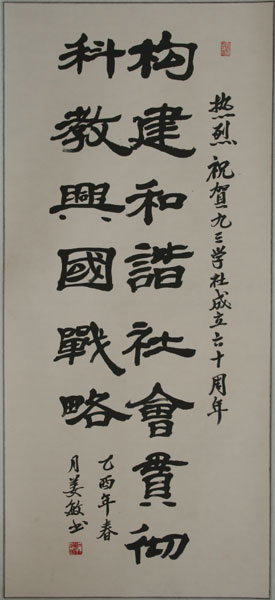 热烈祝贺九三学社成立六十周年
构建和諧社會貫彻
科教興國戰略
乙酉年春
月姜敏书